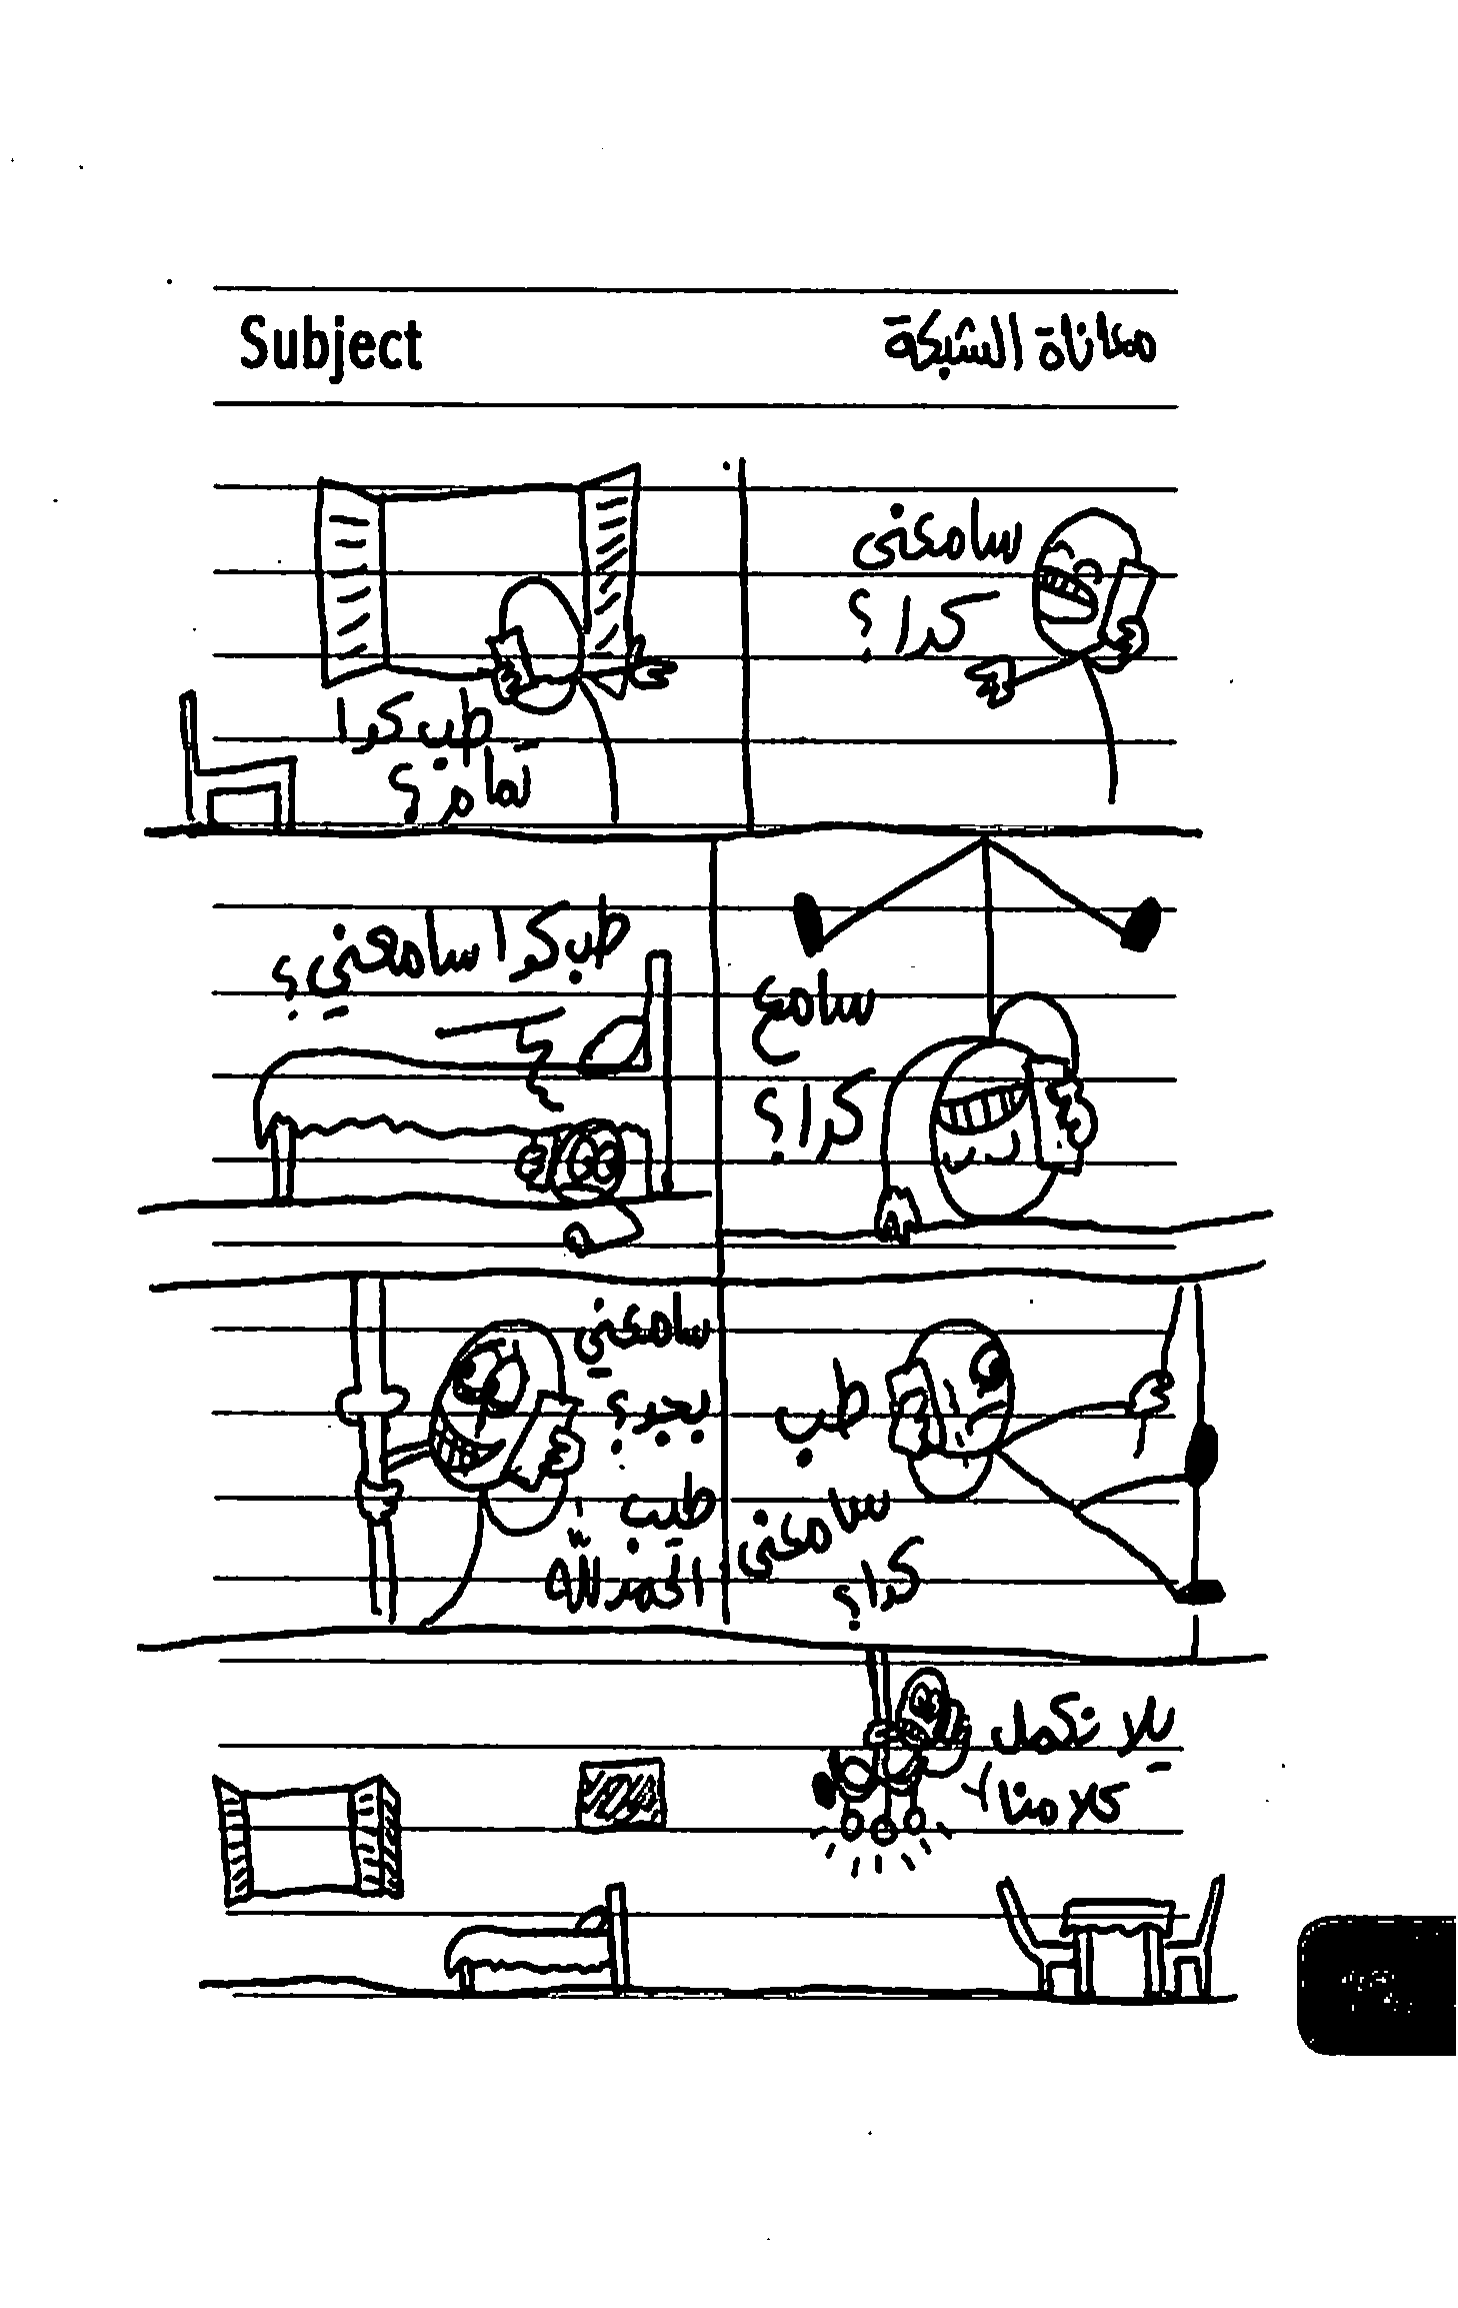 Subject
معاناة الشبكة
سامعني
كدا؟
طب كدا
تمام؟
سامع
كدا؟
طب كدا سامعني؟
طب
سامعني
كدا؟
سامعني
بجد؟
طيب
الحمد لله
يلا نكمل
كلامنا